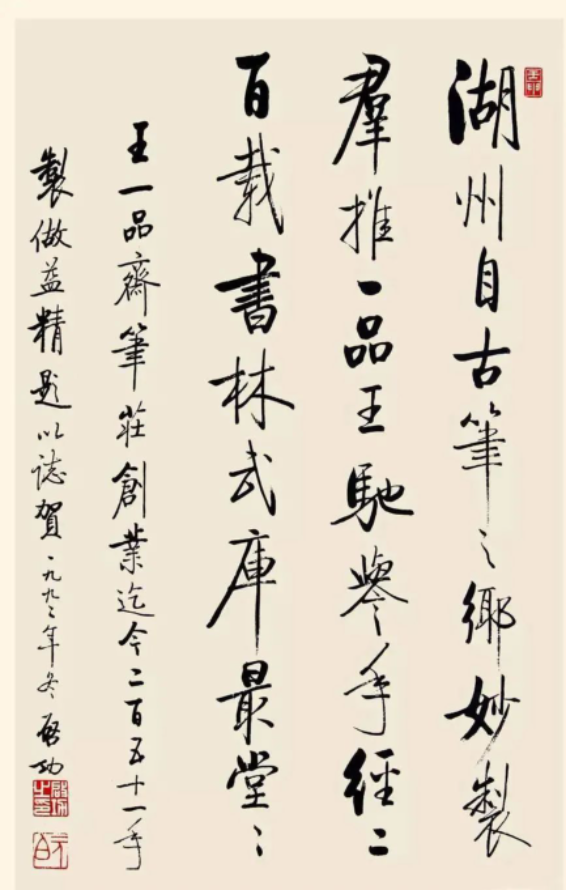 湖州自古筆之鄉妙製
羣推一品王馳譽年經二
百載書林武庫最堂〻
王一品齋筆莊創業迄今二百五十一年
製做益精題以誌賀一九九二年冬 啓功
啓功之印
元白